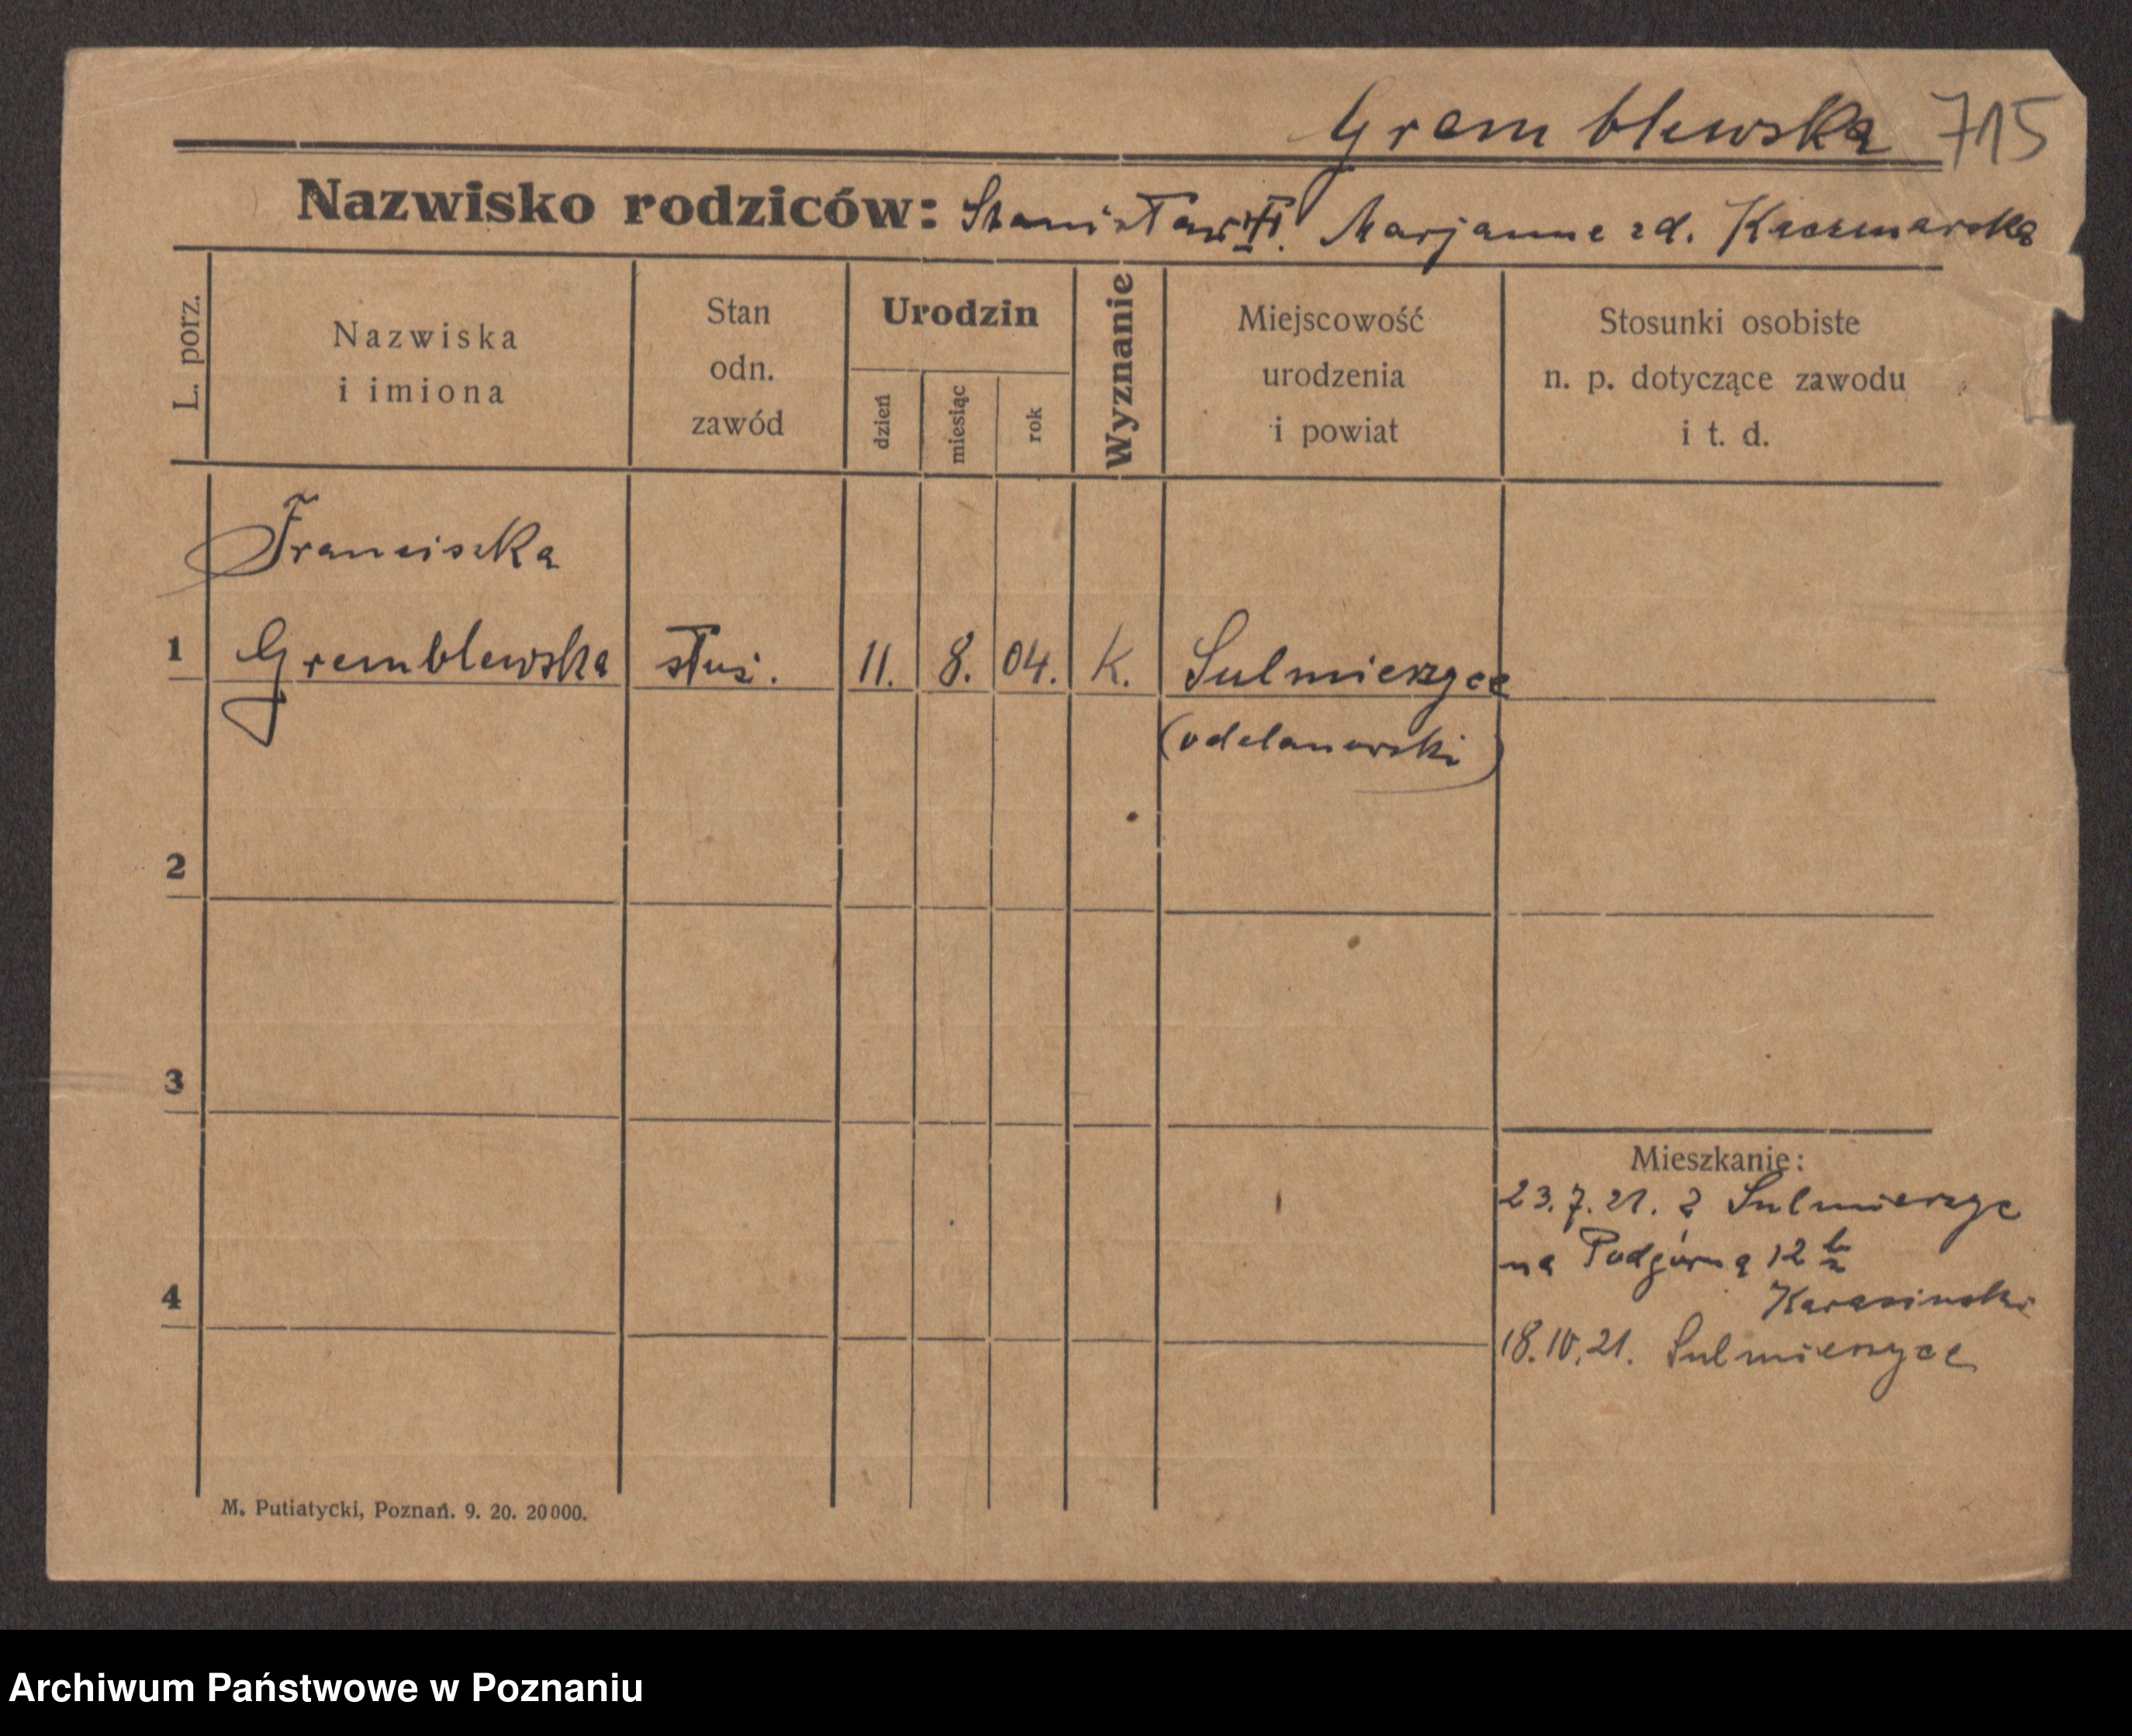 Gremblewska 715
Nazwisko rodziców: Stanisław Marjanne zd. Kaczmarska
L. porz.
Nazwiska
i imiona
Stan
odn.
zawód
Urodzin
dzień
miesiąc
rok
Wyznanie
Miejscowość
urodzenia
i powiat
Stosunki osobiste
n. p. dotyczące zawodu
i t. d.
Franciszka
1 Gremblewska służ. 11. 8. 04. K. Sulmierzyce
(odolanowski)
2
3
4
Mieszkanie:
23.7.21. z Sulmierzyc
na Podgórną 12
Karasinski
18.IV.21. Sulmierzyce
M. Putiatycki, Poznań. 9. 20. 20000.
Archiwum Państwowe w Poznaniu